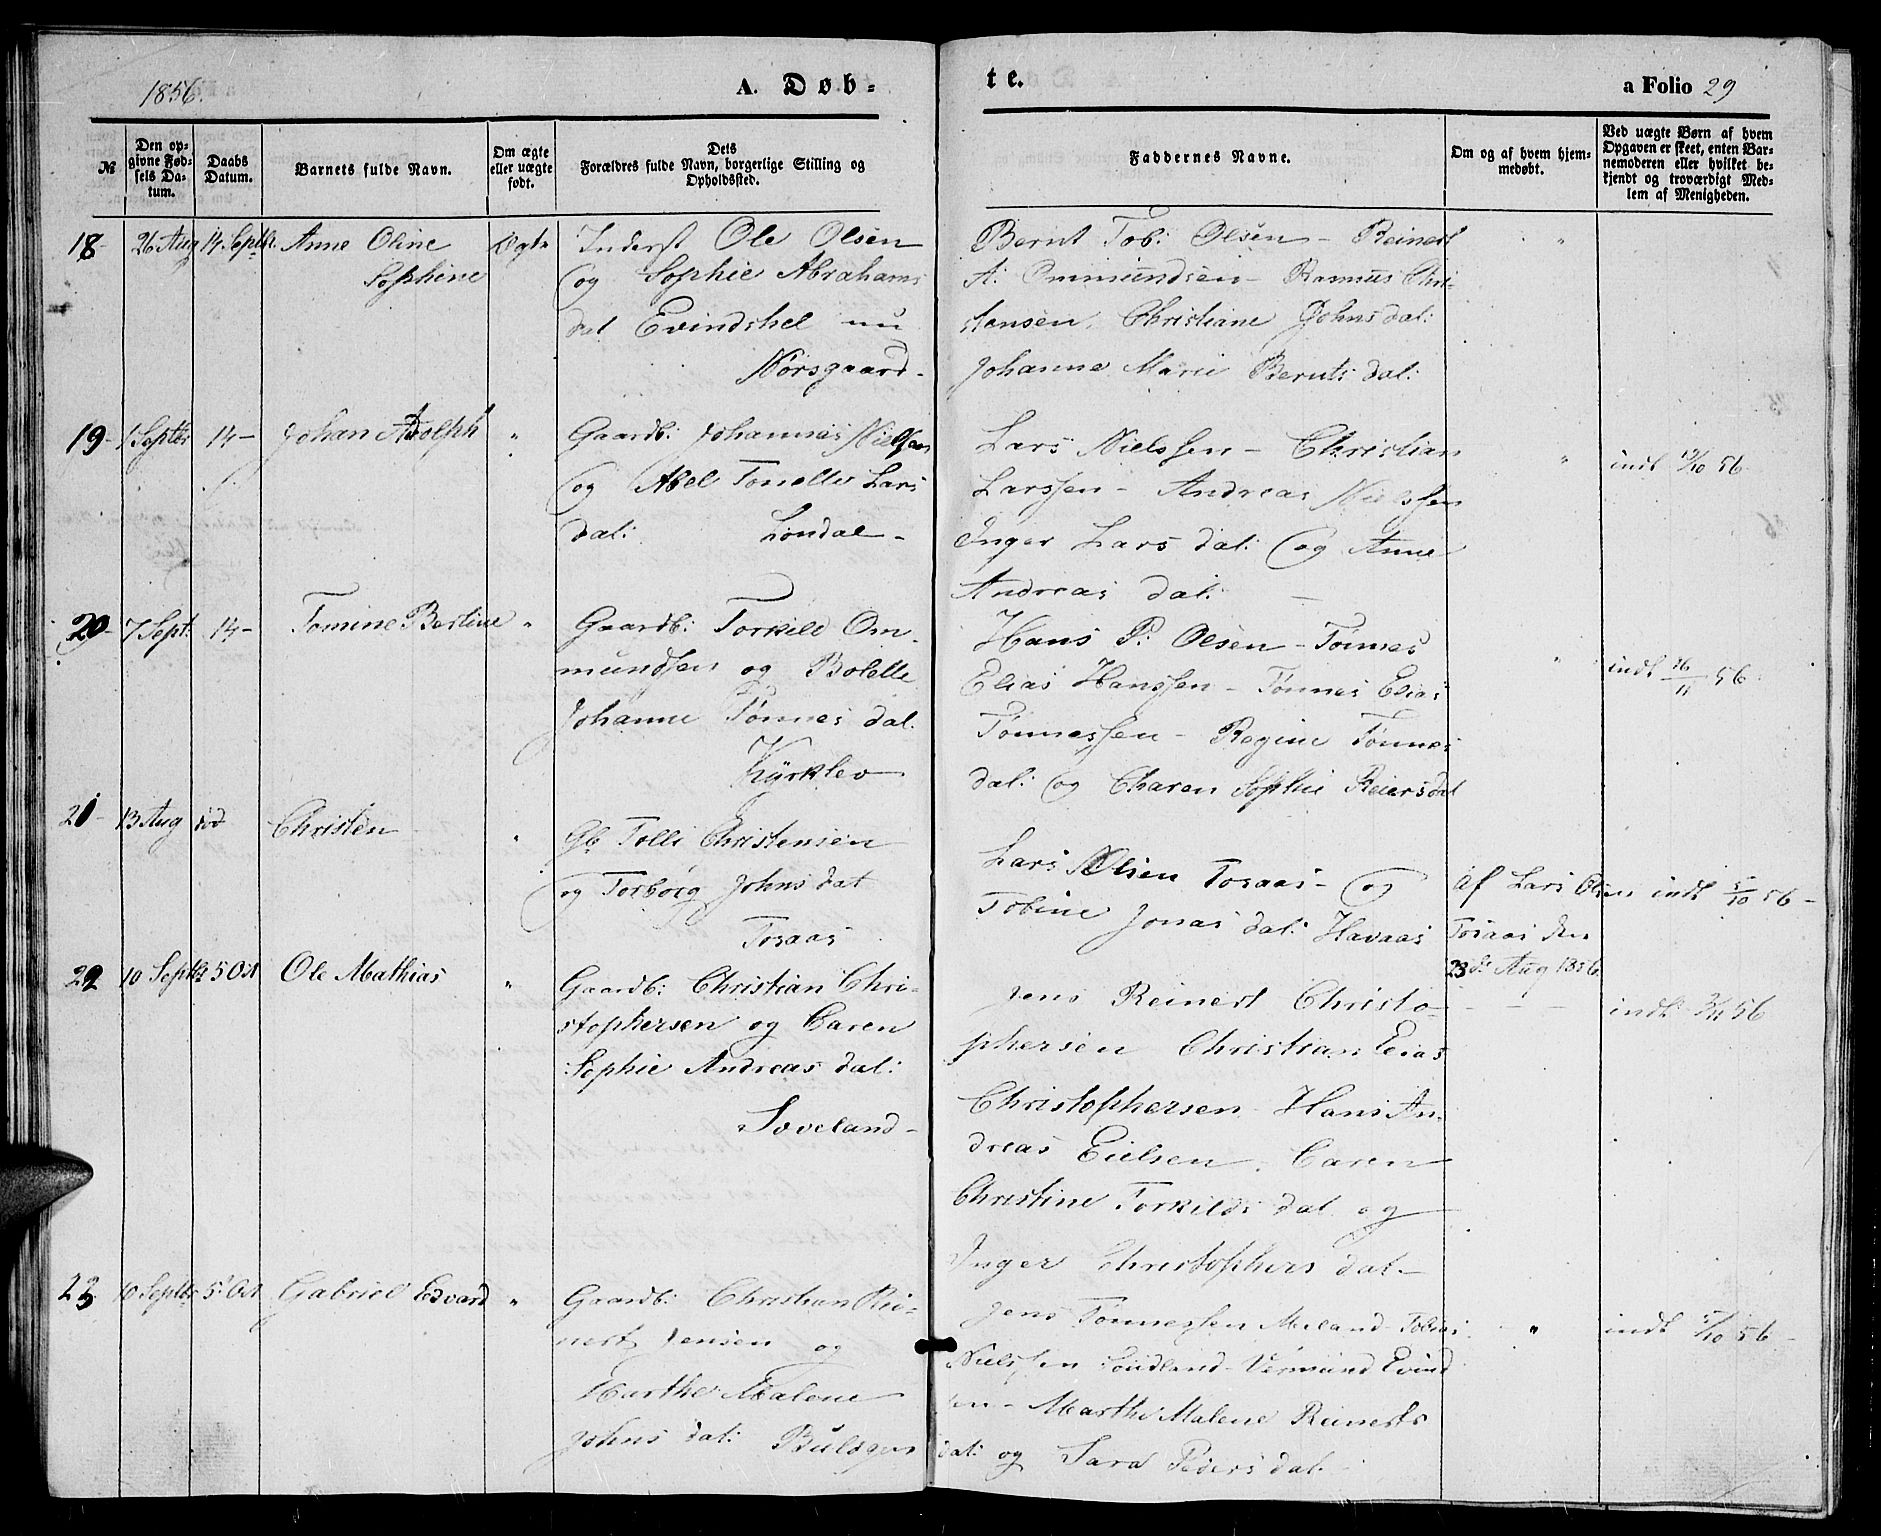 1856.
A. Døb-
te.
a Folio 29
№
Den op-
givne Fød-
sels Da-
tum.
Daabs
Datum.
Barnets fulde Navn.
Om ægte
eller uægte
født.
Dets
Forældres fulde Navn, borgerlige Stilling og
Opholdssted.
Faddernes Navne.
Om og af hvem hjem-
medøbt.
Ved uægte Børn af hvem
Opgaven er skeet, enten Bar-
nemoderen eller hvilket be-
kjendt og troværdigt Med-
lem af Menigheden.
18- 26 Aug 14 Septbr. Anne Oline Ægte
Sophine
Inderst Ole Olsen
og Sophie Abrahams
dat Evindshel nu
Nørsgaard-
Bernt Tob: Olsen - Reinert
A: Ommundsen - Rasmus Chri-
stensen, Christiane Johnsdal:
Johanne Marie Bernts dal:
19- 1 Septbr 14- Johan Adolph "
Gaardb: Johannes Nielssen
og Abel Tonette Lars
dal: Londal-
Lars Nielssen - Christian
Larssen - Andreas Nielssen
Inger Lars dal: og Anne
Andreas dal: -
" indt 56
20- 7 Sept. 14- Tomine Bertine "
Gaardb: Torkild Om-
mundsen og Bolette
Johanne Tønnes dal.
Kyrklev
Hans P: Olsen - Tønnes
Elias Hanssen - Tønnes Elias
Tønnessen - Regine Tønnes
dal: og Charen Sophie Reiersdat
" indt 16/11 56
21- 13 Aug død Christen "
Gb Tolli Christensen
og Torborg Johns dat
Tosaas
Lars Olsen Tosaas - og
Tobine Jonas dal: Havaas
Af Lars Olsen
Tosaas den
23de Aug 1856
indt 5/10 56-
22 10 Septbr 5 Oct Ole Mathias "
Gaardb: Christian Chri-
stophersen og Caren
Sophie Andreas dal:
Soveland-
Jens Reinert Christo-
phersen Christian Elias
Christophersen - Hans An-
dreas Eielsen, Caren
Christine Torkilds dal og
Inger Christophers dal-
indt 2/11 56
23 10 Septbr 5 Oct Gabriel Edvard "
Gaardb: Christian Rei-
nert Jensen og
Marthe Malene
Johns dal:
Jens Tønnessen Meland Tobias
Nielssen Vermund Evind
sen - Marthe Malene Reinerts
dal: og Sara Peders dal-
" indt 56-